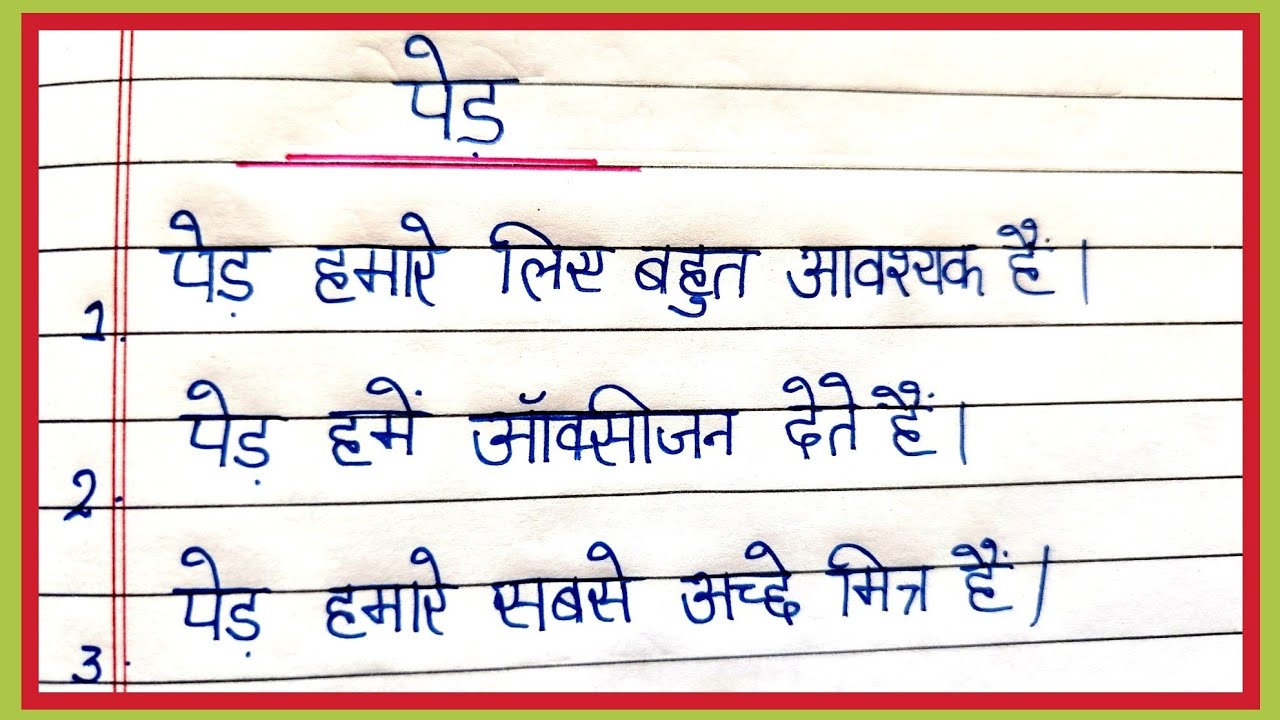 पेड़
1. पेड़ हमारे लिए बहुत आवश्यक हैं।
2. पेड़ हमें ऑक्सीजन देते हैं।
3. पेड़ हमारे सबसे अच्छे मित्र हैं।